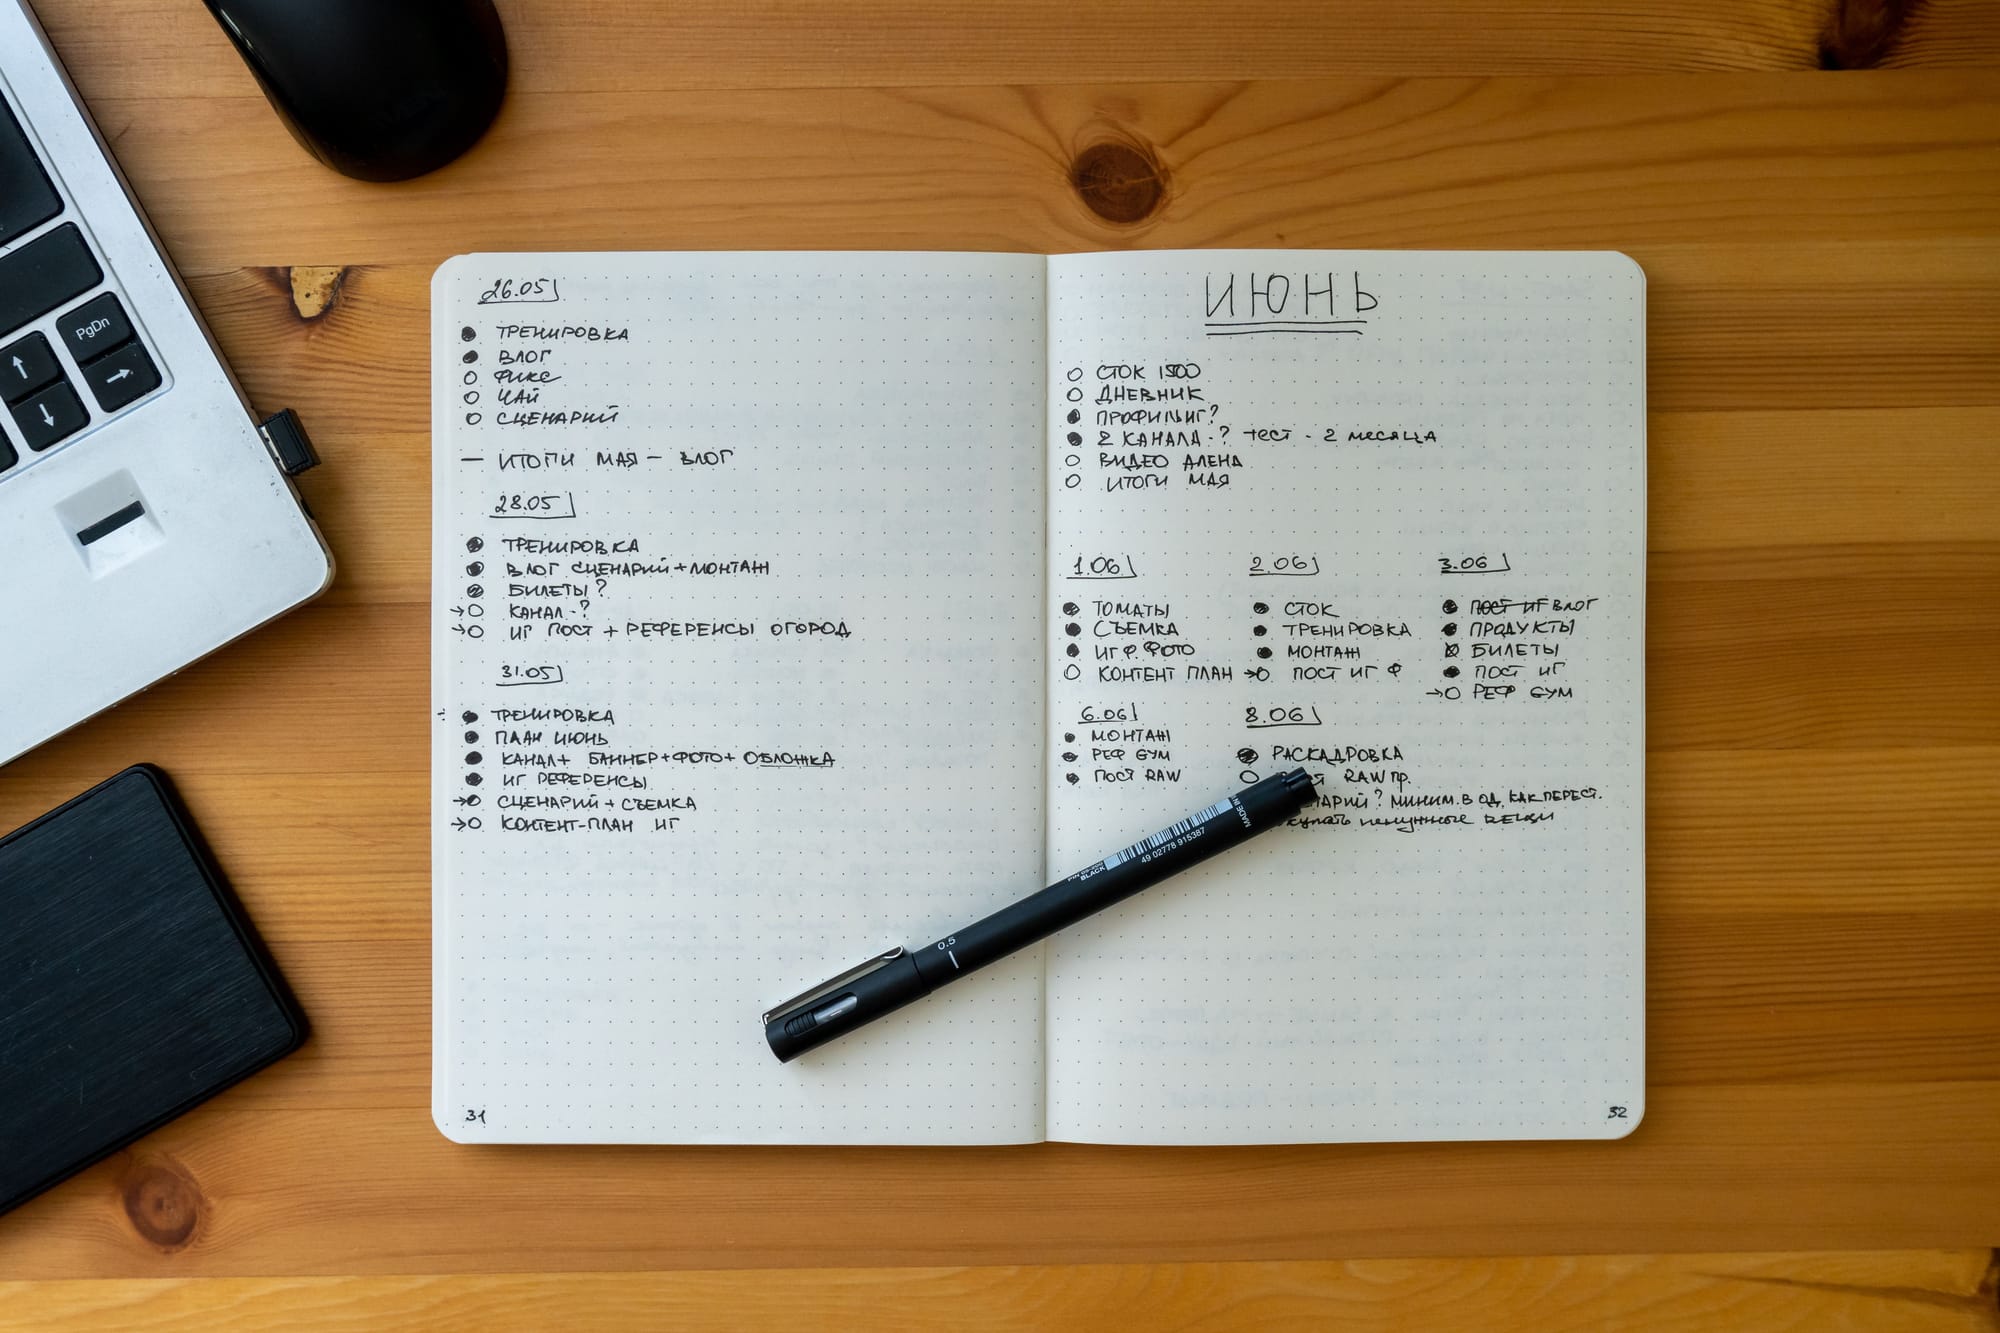 PgDn
26.05
ТРЕНИРОВКА
ВЛОГ
ФИКС
ЧАЙ
СЦЕНАРИЙ
— ИТОГИ МАЯ — ВЛОГ
28.05
ТРЕНИРОВКА
ВЛОГ СЦЕНАРИЙ + МОНТАЖ
БИЛЕТЫ?
→ КАНАЛ -?
→ ИГ ПОСТ + РЕФЕРЕНСЫ ОГОРОД
31.05
ТРЕНИРОВКА
ПЛАН ИЮНЬ
КАНАЛ + БАННЕР + ФОТО + ОБЛОЖКА
ИГ РЕФЕРЕНСЫ
→ СЦЕНАРИЙ + СЪЕМКА
→ КОНТЕНТ-ПЛАН ИГ
31
ИЮНЬ
СТОК 1500
ДНЕВНИК
ПРОФИЛЬ ИГ?
2 КАНАЛА -? ТЕСТ - 2 МЕСЯЦА
ВИДЕО АЛЕНА
ИТОГИ МАЯ
1.06
ТОМАТЫ
СЪЕМКА
ИГ Ф. ФОТО
КОНТЕНТ ПЛАН
2.06
СТОК
ТРЕНИРОВКА
МОНТАЖ
→ ПОСТ ИГ Ф
3.06
ПОСТ ИГ ВЛОГ
ПРОДУКТЫ
БИЛЕТЫ
ПОСТ ИГ
→ РЕФ GYM
6.06
МОНТАЖ
РЕФ GYM
ПОСТ RAW
8.06
РАСКАДРОВКА
RAW ПР.
МИНИМ. В ОД. КАК ПЕРЕСТ.
ненужные вещи
32
0.5
BLACK
49 02778 915387
MADE IN